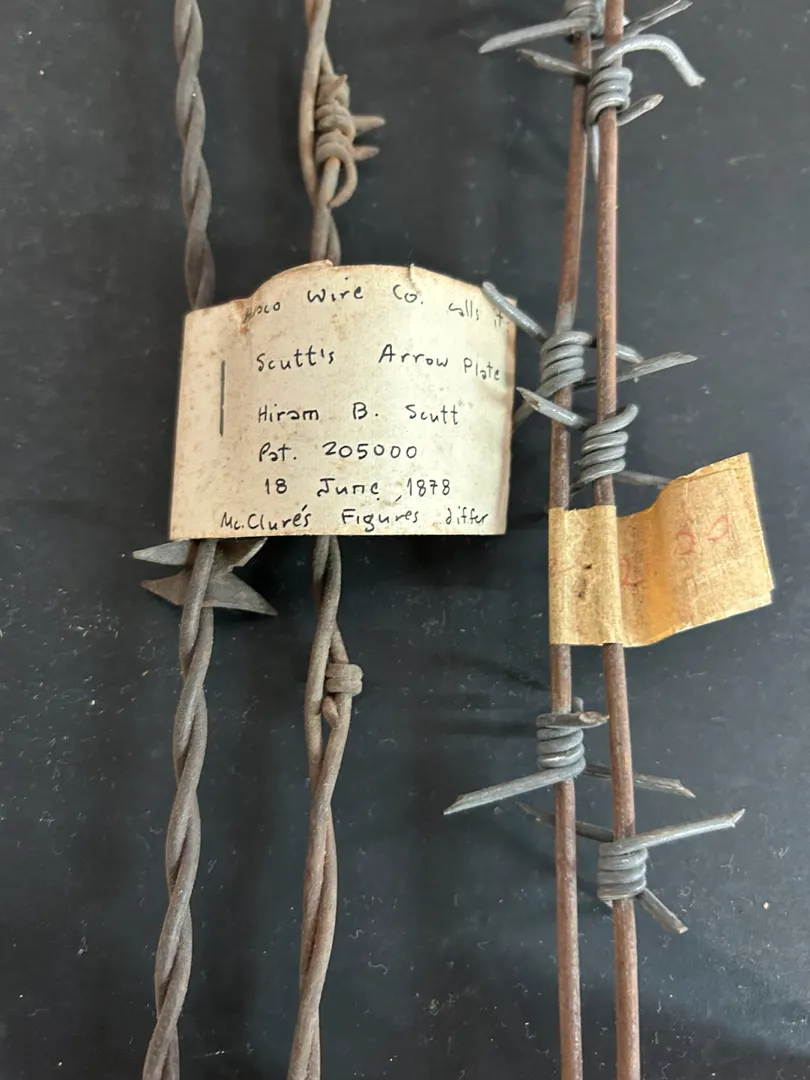 Wire Co. calls it
Scutt's Arrow Plate
Hiram B. Scutt
Pat. 205000
18 June, 1878
Mc.Clure's Figures differ